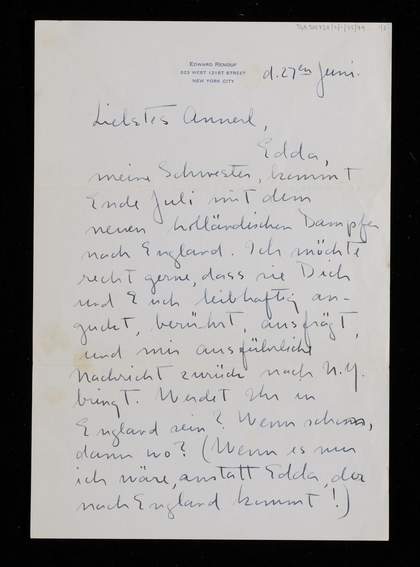 EDWARD RENOUF
223 WEST 121ST STREET
NEW YORK CITY
d. 27ten Juni.
Liebstes Annerl,
Edda,
meine Schwester, kommt
Ende Juli mit dem
neuen holländischen Dampfer
nach England. Ich möchte
recht gerne, dass sie Dich
und Euch leibhaftig an-
guckt, berührt, ausfrägt,
und mir ausführliche
Nachricht zurück nach N.Y.
bringt. Werdet Ihr in
England sein? Wenn schon,
dann wo? (Wenn es nur
ich wäre, anstatt Edda, der
nach England kommt!)